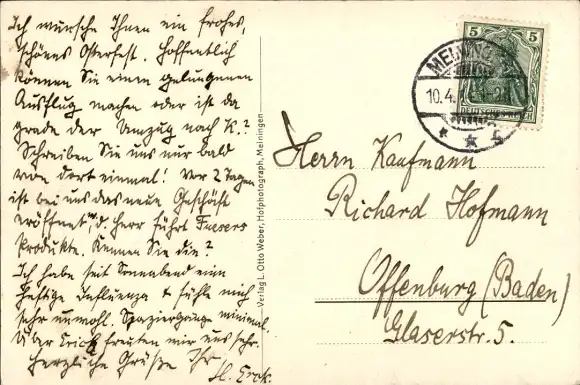 Ich wünsche Ihnen ein frohes,
schönes Osterfest. Hoffentlich
können Sie einen gelungenen
Ausflug machen oder ist da
grade der Umzug nach K.?
Schreiben Sie uns nur bald
von dort einmal! Vor 2 Tagen
ist bei uns das neue Geschäft
eröffnet, d. Herr führt
Produkte. Kennen Sie die?
Ich habe seit Sonnabend eine
heftige Influenza + fühle mich
sehr unwohl. Spaziergänge minimal.
Über freuten wir uns sehr.
Herzliche Grüße Ihr
Verlag L. Otto Weber, Hofphotograph, Meiningen
5 5
DEUTSCHES REICH
MEININGEN
10.4.
* * 5
Herrn Kaufmann
Richard Hofmann
Offenburg (Baden)
Glaserstr. 5.